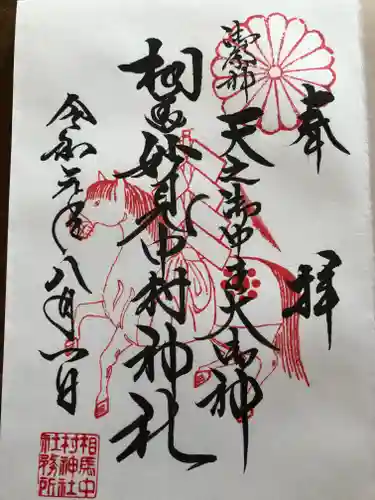 奉拝
御祭神
天之御中主大神
相馬妙見中村神社
令和元年八月一日
相馬中
村神社
社務所